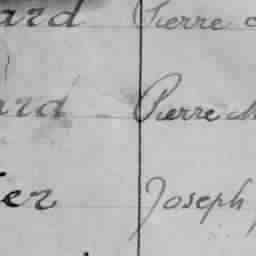 ard Pierre
ard Pierre M
er Joseph